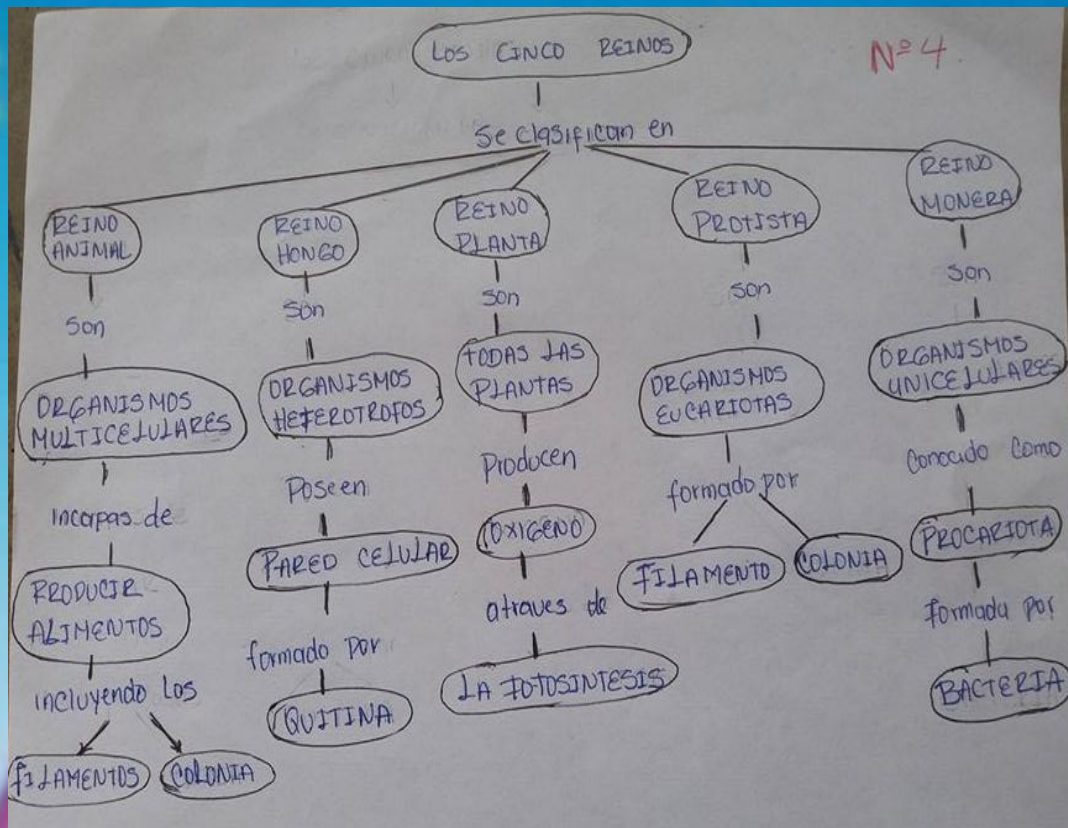 LOS CINCO REINOS
Nº 4.
Se clasifican en
REINO
ANIMAL
son
ORGANISMOS
MULTICELULARES
incapas de
PRODUCIR
ALIMENTOS
incluyendo los
FILAMENTOS
COLONIA
REINO
HONGO
son
ORGANISMOS
HETEROTROFOS
Poseen
PARED CELULAR
formado por
QUITINA
REINO
PLANTA
son
TODAS LAS
PLANTAS
Producen
OXIGENO
atraves de
LA FOTOSINTESIS
REINO
PROTISTA
son
ORGANISMOS
EUCARIOTAS
formado por
FILAMENTO
COLONIA
REINO
MONERA
son
ORGANISMOS
UNICELULARES
Conocido como
PROCARIOTA
formada por
BACTERIA